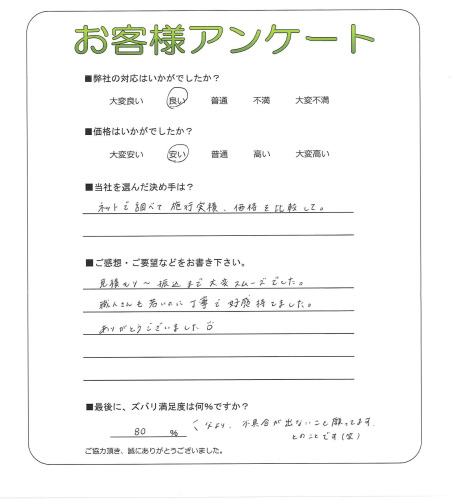 お客様アンケート
■弊社の対応はいかがでしたか？
大変良い 良い 普通 不満 大変不満
■価格はいかがでしたか？
大変安い 安い 普通 高い 大変高い
■当社を選んだ決め手は？
ネットで調べて施行実積、価格を比較して。
■ご感想・ご要望などをお書き下さい。
見積もり〜振込まで大変スムーズでした。
職人さんも若いのに丁寧で好感持てました。
ありがとうございました
■最後に、ズバリ満足度は何％ですか？
80 ％
不具合が出ないこと願ってます。
とのことです(笑)
ご協力頂き、誠にありがとうございました。